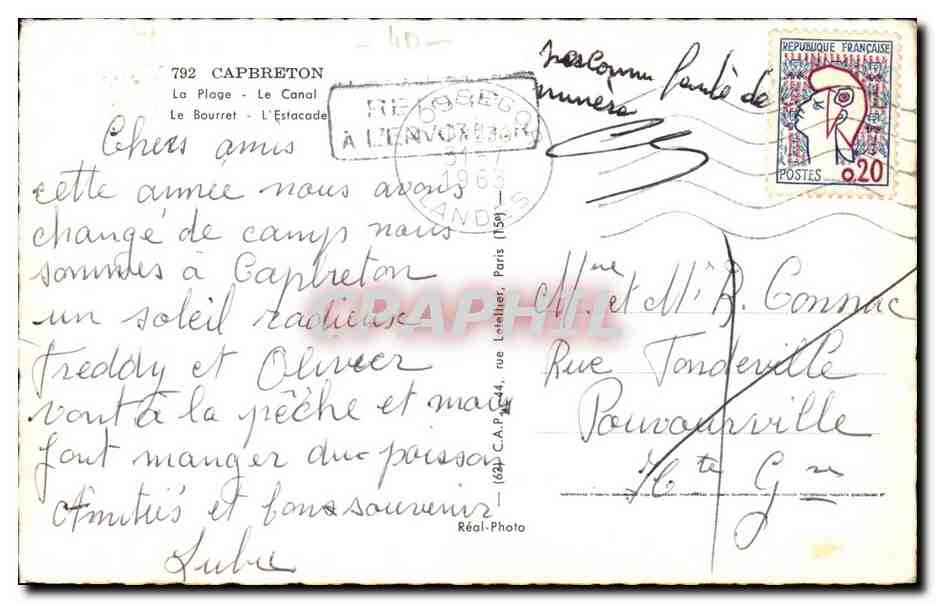 792 CAPBRETON
La Plage - Le Canal
Le Bourret - L'Estacade
Chers amis
cette année nous avons
changé de camp nous
sommes à Capbreton
un soleil radieux
Freddy et Olivier
vont à la pêche et mari
font manger du poisson
Amitiés et bons souvenir
(62) C.A.P. - 44, rue Letellier, Paris (15e)
Réal-Photo
À L'ENVOYEUR
1963
LANDES
numéro
faute de
REPUBLIQUE FRANÇAISE
POSTES 0,20
Mme et Mr R. Connac
Rue Tondeville
Pouvourville
Hte Gne
CPAPHIL